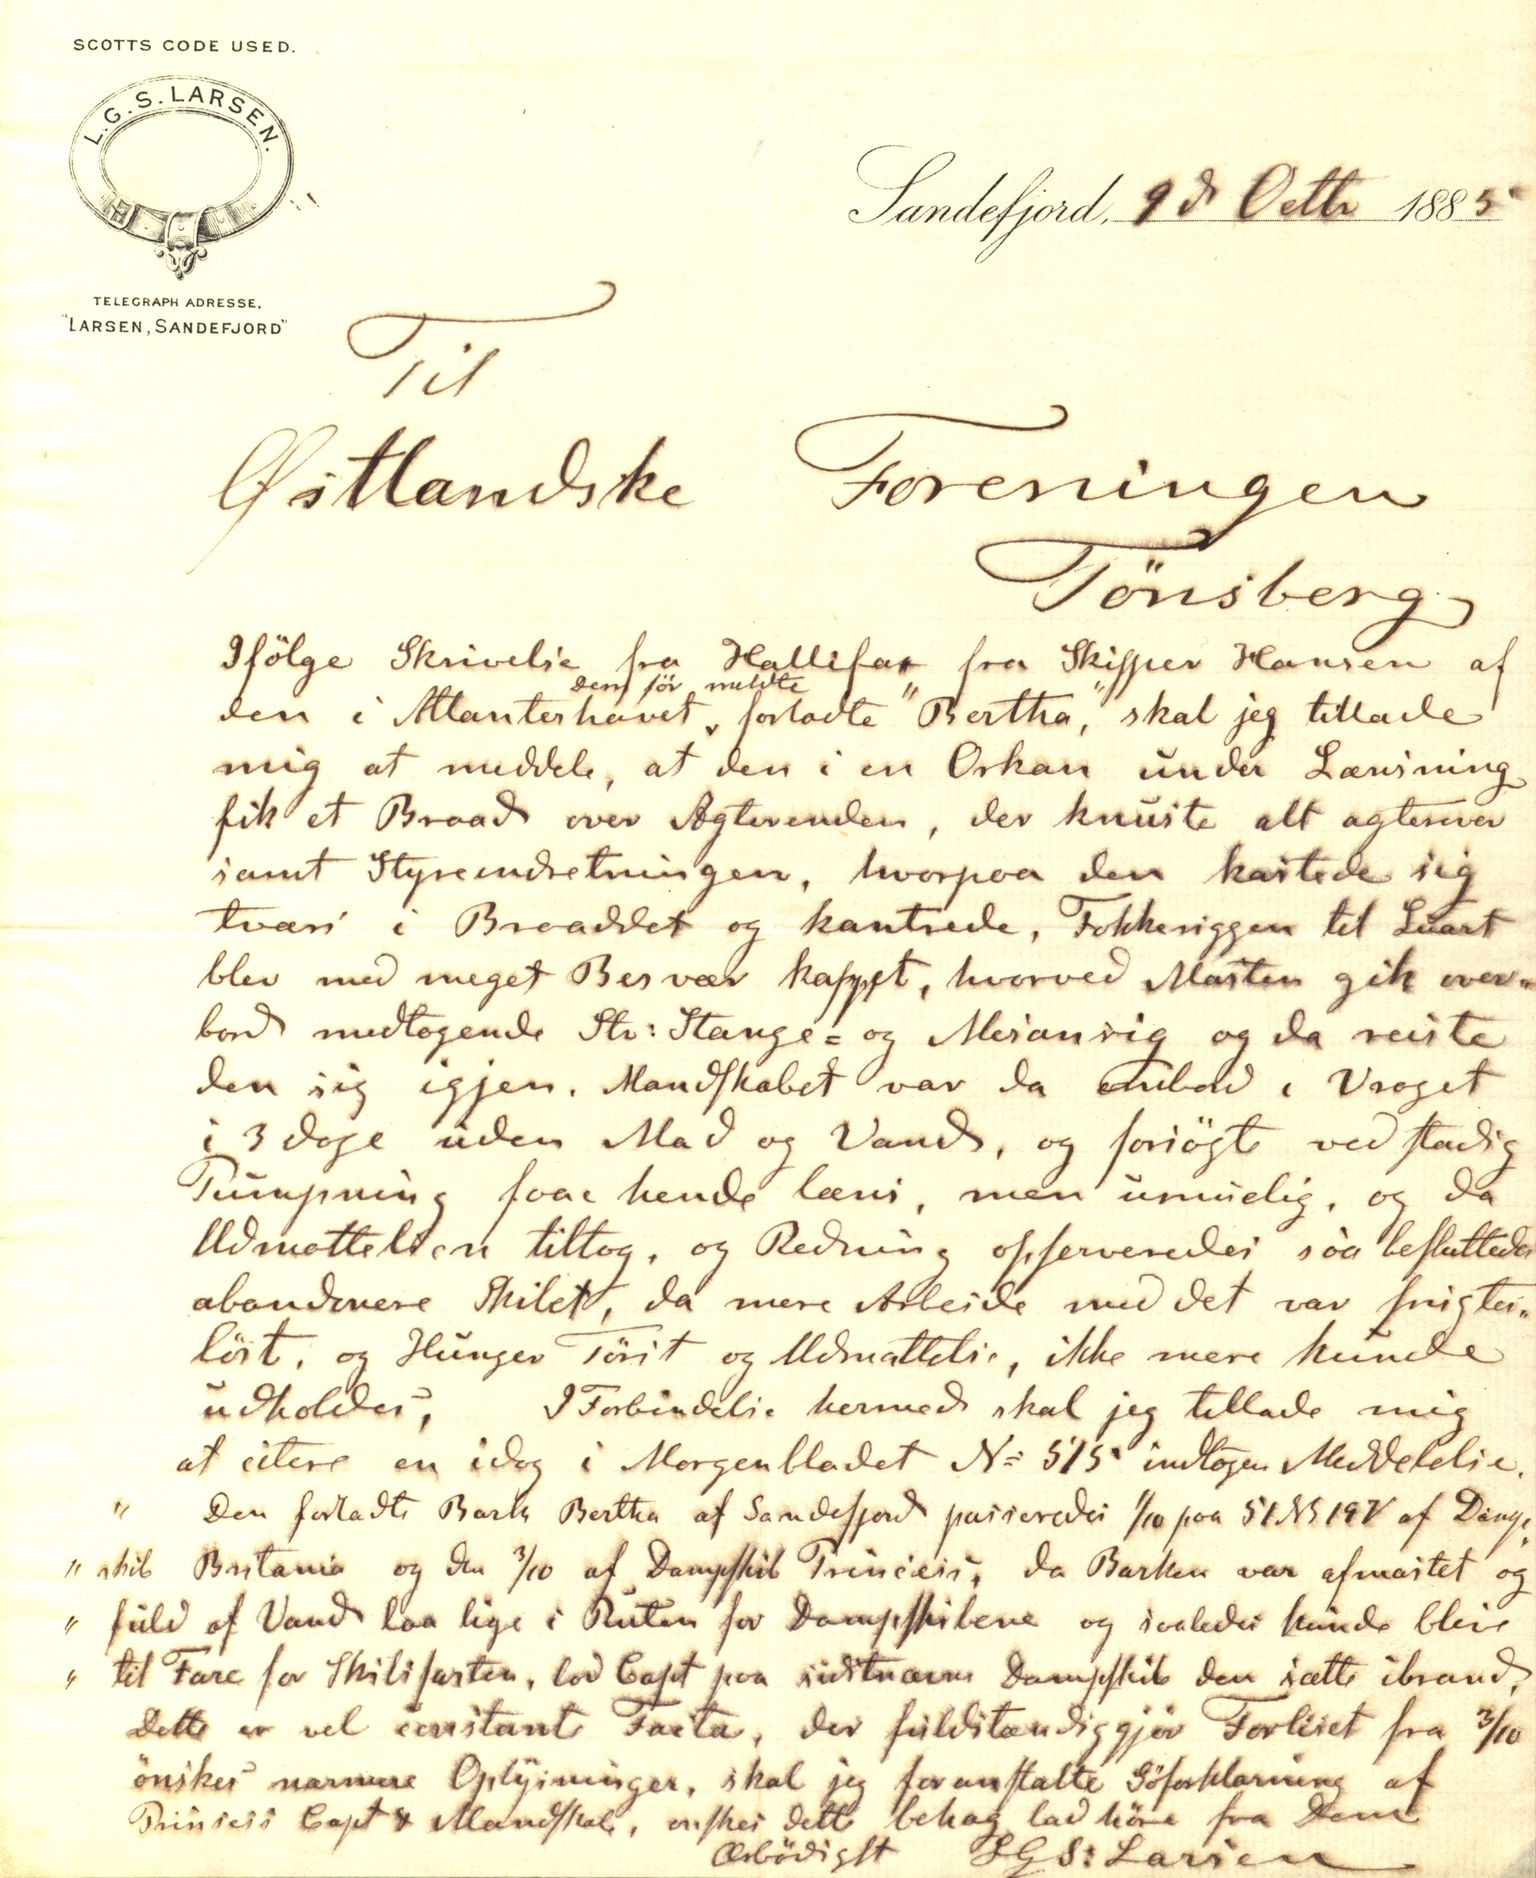 SCOTTS CODE USED.
L.G.S. LARSEN.
TELEGRAPH ADRESSE,
"LARSEN, SANDEFJORD"
Sandefjord, 9 d Octbr 1885
Til
Østlandske Foreningen
Tönsberg
Ifölge Skrivelse fra Hallifax fra Skipper Hansen af
dem för meldte
den i Atlanterhavet forladte "Bertha," skal jeg tillade
mig at meddele, at den i en Orkan under Lænsning
fik et Braad over Agterenden, der knuste alt agterover
samt Styreindretningen, hvorpaa den kastede sig
tværs i Braaddet og kantrede, Fokkeriggen til Luart
blev med meget Besvær kappet, hvorved Masten gik over-
bord medtagende Str: Stange = og Mesanrig og da reiste
den sig igjen. Mandskabet var da ombord i Vraget
i 3 dage uden Mad og Vand, og forsögte ved stadig
Pumpning faae hende læns, men umuelig, og da
Udmattelsen tiltog, og Redning opserveredes saa besluttedes
abandonere Skibet, da mere Arbeide med det var frugtes-
löst, og Hunger Törst og Udmattelse, ikke mere kunde
udholdes, I Forbindelse hermed skal jeg tillade mig
at citere en idag i Morgenbladet No 515 indtagen Meddelelse.
" Den forladte Bark Bertha af Sandefjord passeredes 1/10 paa 51 N 19 V af Damp-
" skib Britania og den 3/10 af Dampskib Princess, da Barken var afmastet og
" fuld af Vand laa lige i Ruten for Dampskibene og saaledes kunde blive
" til Fare for Skibsfarten, lod Capt paa sidstnævn Dampskib den sætte ibrand,
Dette er vel constante Facta, der fuldstændiggjör Forliset fra 3/10
önskes nærmere Oplysninger, skal jeg foranstalte Söforklaring af
Prinsess Capt & Mandskab, önskes dette behag lad höre fra Dem
Ærbödigst LGS: Larsen